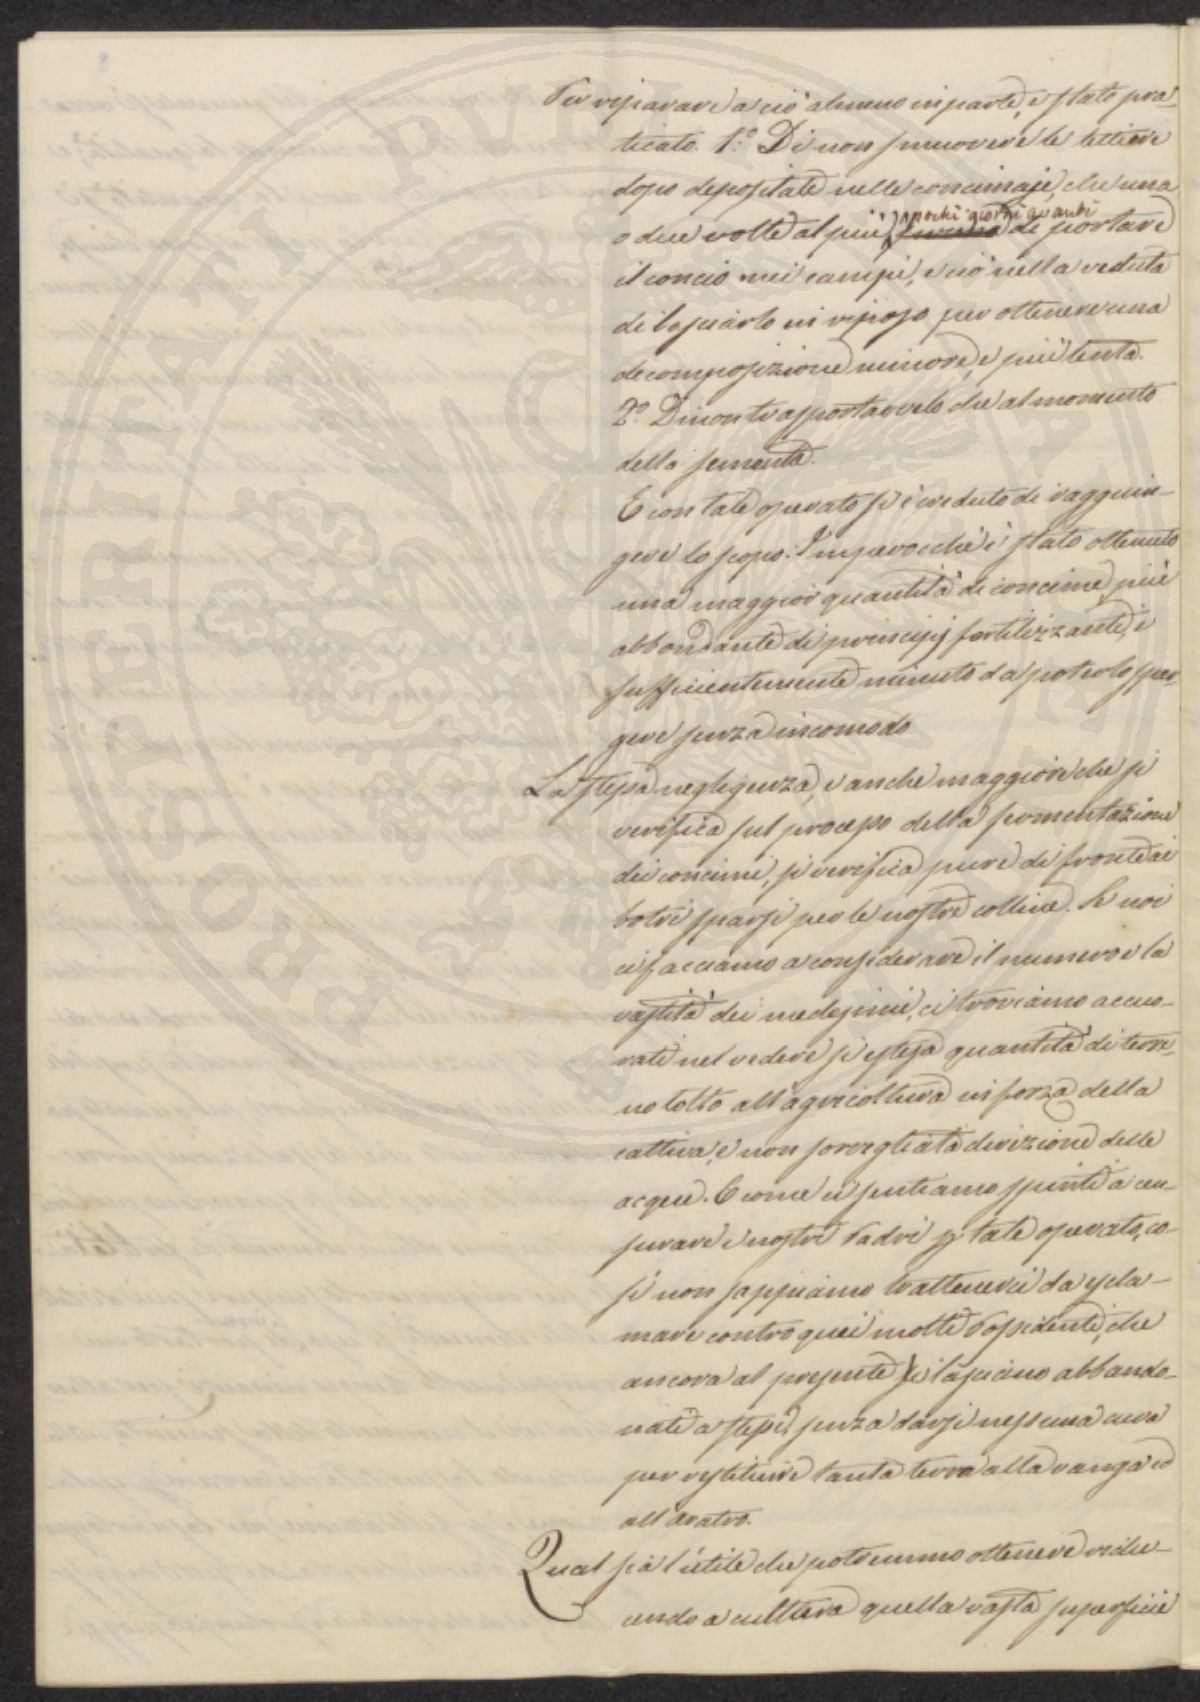 Per riparare a ciò almeno in parte, è stato pra-
ticato. 1.º Di non smuovere le lettiere
dopo depositate nelle concimaje, che una
o due volte al più, pochi giorni avanti di portare
il concio nei campi, e ciò nella veduta
di lasciarlo in riposo per ottenere una
decomposizione minore, e più lenta.
2.º Di non trasportarvelo che al momento
della sementa.
E con tale operato si è creduto di raggiun-
gere lo scopo. Imperocchè è stato ottenuto
una maggior quantità di concime, più
abbondante di principij fertilizzanti, e
sufficientemente minuto da poterlo spar-
gere senza incomodo
La stessa negligenza, e anche maggiore che si
verifica sul processo della fermentazione
dei concimi, si verifica pure di fronte ai
botri sparsi per le nostre colline. Se noi
ci facciamo a considerare il numero e la
vastità dei medesimi, ci troviamo accuo-
rati nel vedere sì estesa quantità di terre-
no tolto all'agricoltura in forza della
cattiva, e non sorvegliata divizione delle
acque. E come ci sentiamo spinti a cen-
surare i nostri Padri p tale operato, co-
sì non sappiamo trattenerci da escla-
mare contro quei molti Possidenti, che
ancora al presente li lasciano abbando-
nati a stessi, senza darsi nessuna cura
per restituire tanta terra alla vanga ed
all'aratro.
Qual sia l'utile che potremmo ottenere ridu-
cendo a cultura quella vasta superficie